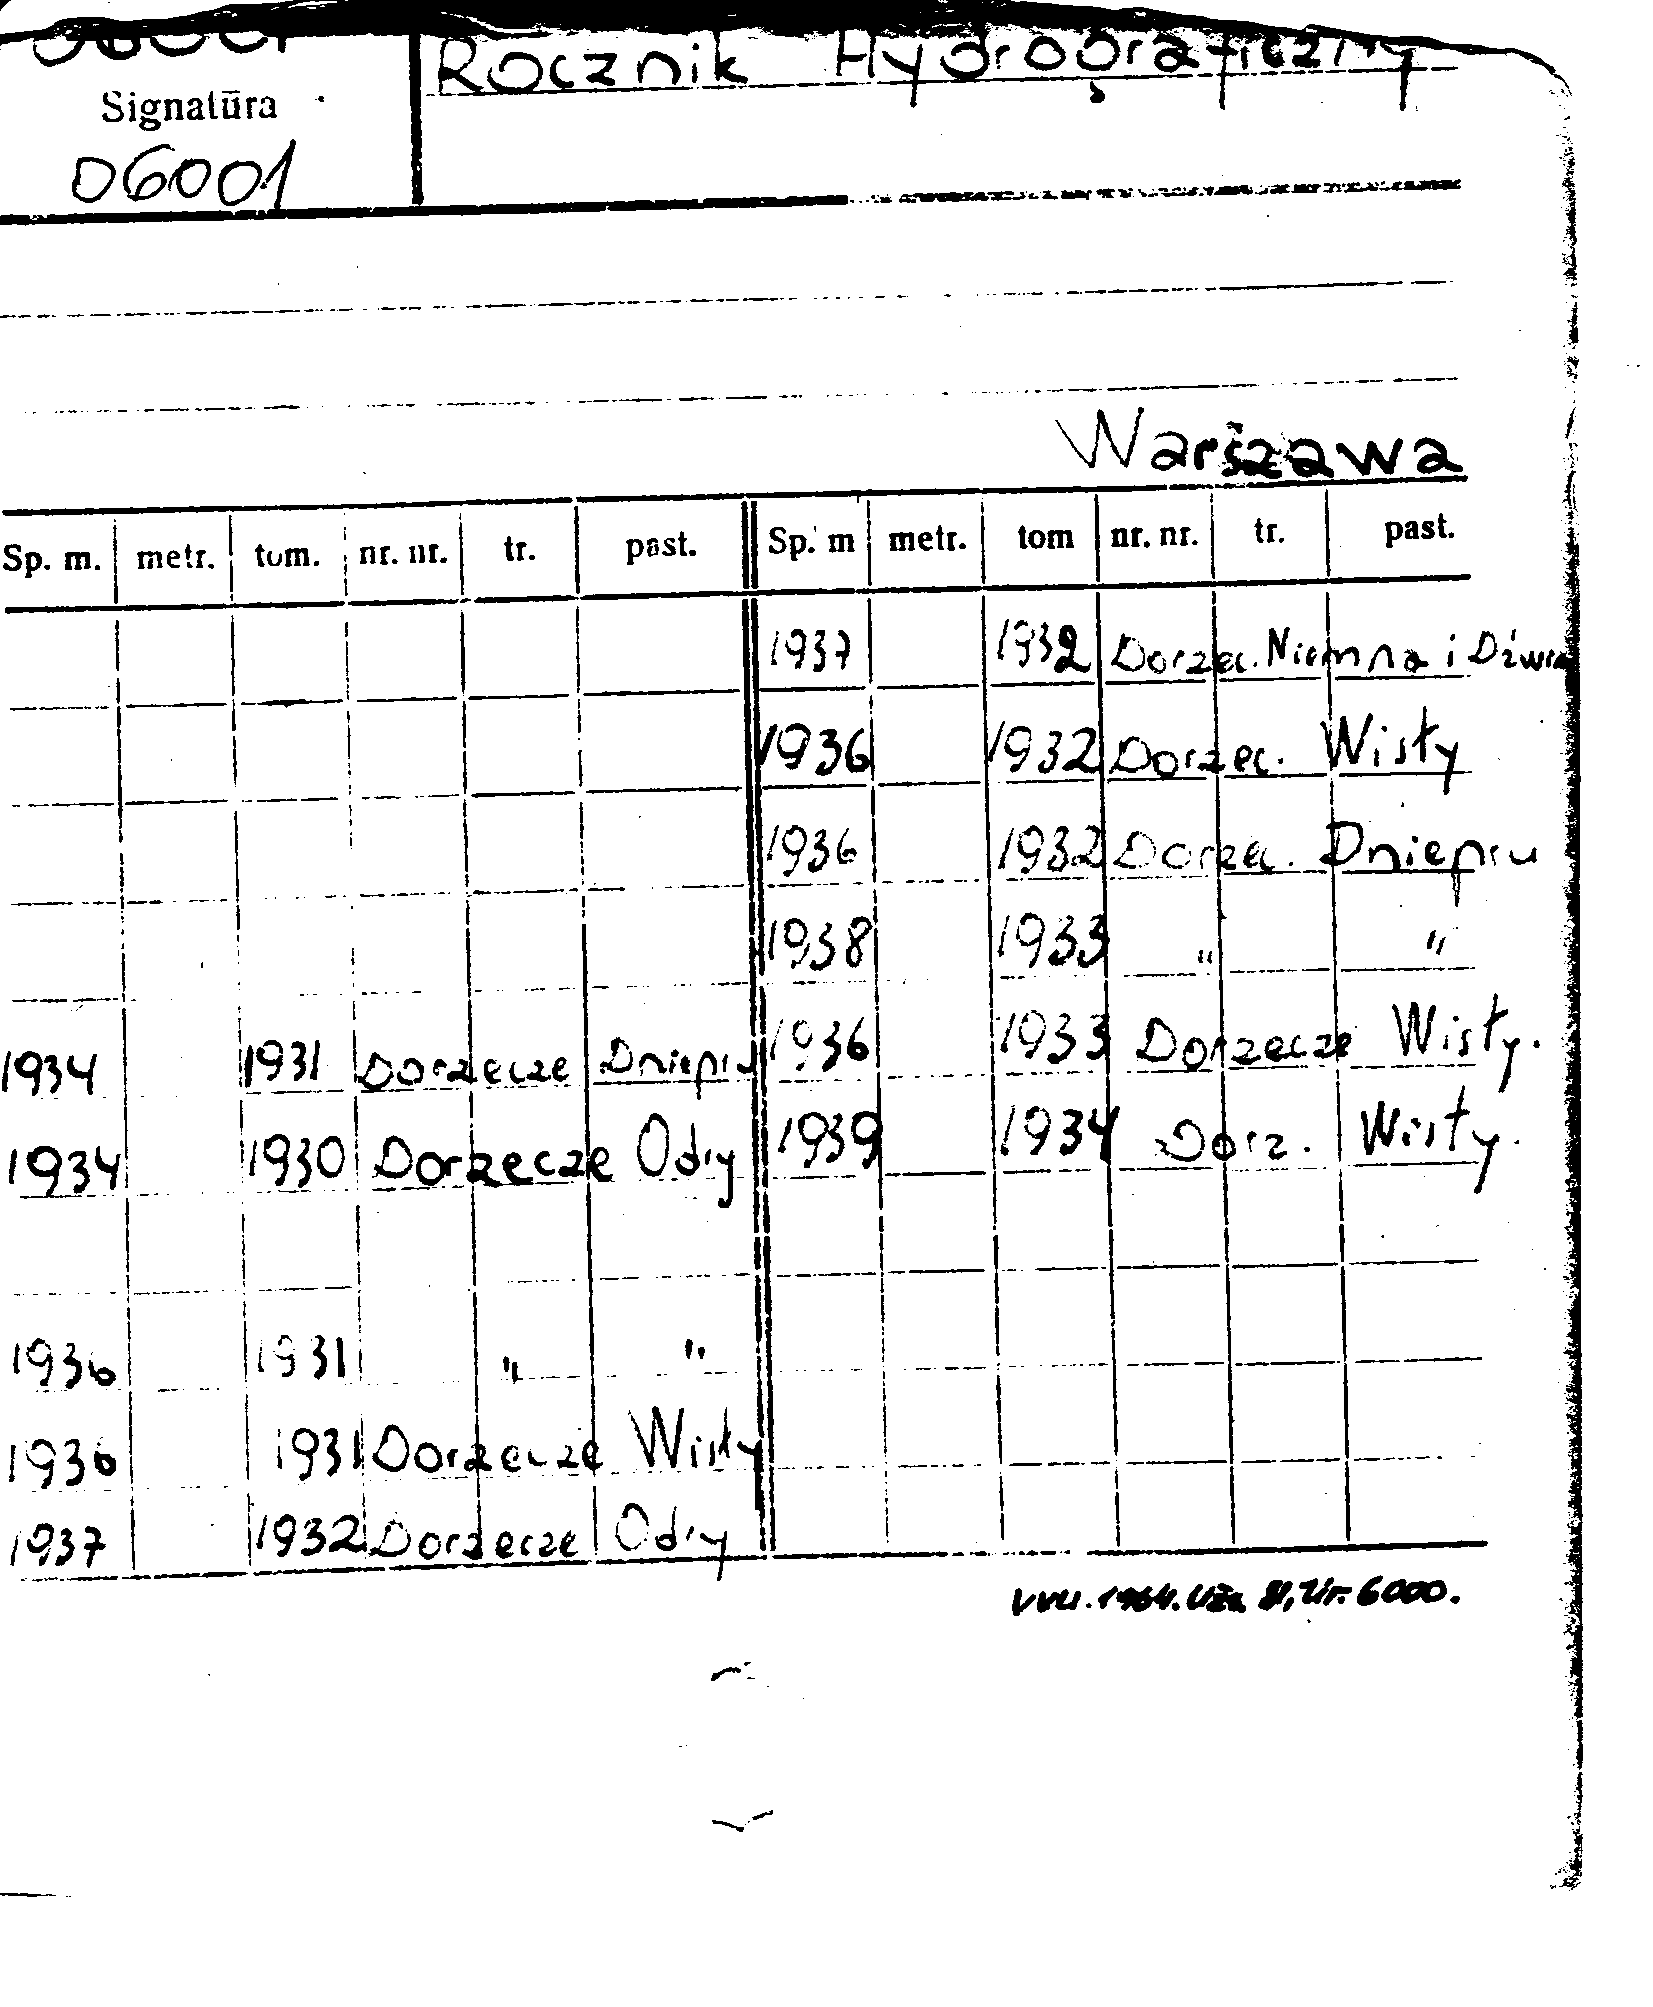 Rocznik Hydrograficzny
Signatūra
06001
Warszawa
Sp. m. metr. tom. nr. nr. tr. past. Sp. m metr. tom nr. nr. tr. past.
1937 1932 Dorzec. Niemna i
1936 1932 Dorzec. Wisły
1936 1932 Dorzec. Dniepru
1938 1933 " "
1934 1931 Dorzecze Dniepru 1936 1933 Dorzecze Wisły.
1934 1930 Dorzecze Odry 1939 1934 Dorz. Wisły.
1936 1931 " "
1936 1931 Dorzecze Wisły
1937 1932 Dorzecze Odry
VVU. 1964. Už. Tir. 6000.